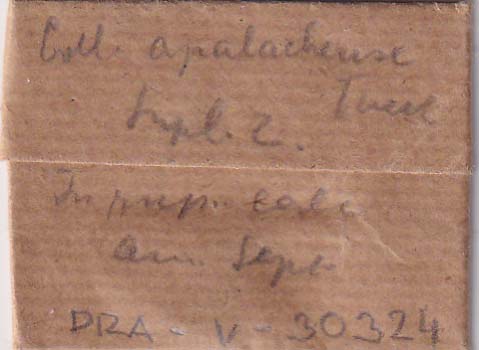 Coll. apalachense
Tuck
Dupl. 2.
In prep.
Am. Sept.
DRA-V-30324